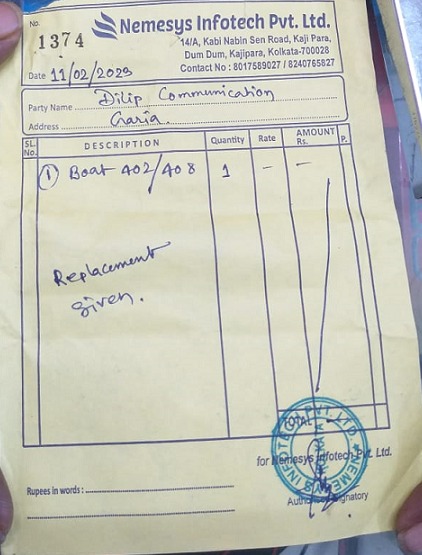 No.
1374
Nemesys Infotech Pvt. Ltd.
14/A, Kabi Nabin Sen Road, Kaji Para,
Dum Dum, Kajipara, Kolkata-700028
Contact No : 8017589027 / 8240765827
Date 11/02/2023
Party Name Dilip Communication
Address Garia.
SL. No. DESCRIPTION Quantity Rate AMOUNT Rs. P.
① Boat 402/408 1 – –
Replacement
given.
TOTAL
NEMESYS INFOTECH PVT. LTD.
for Nemesys Infotech Pvt. Ltd.
Rupees in words :
Authorised Signatory